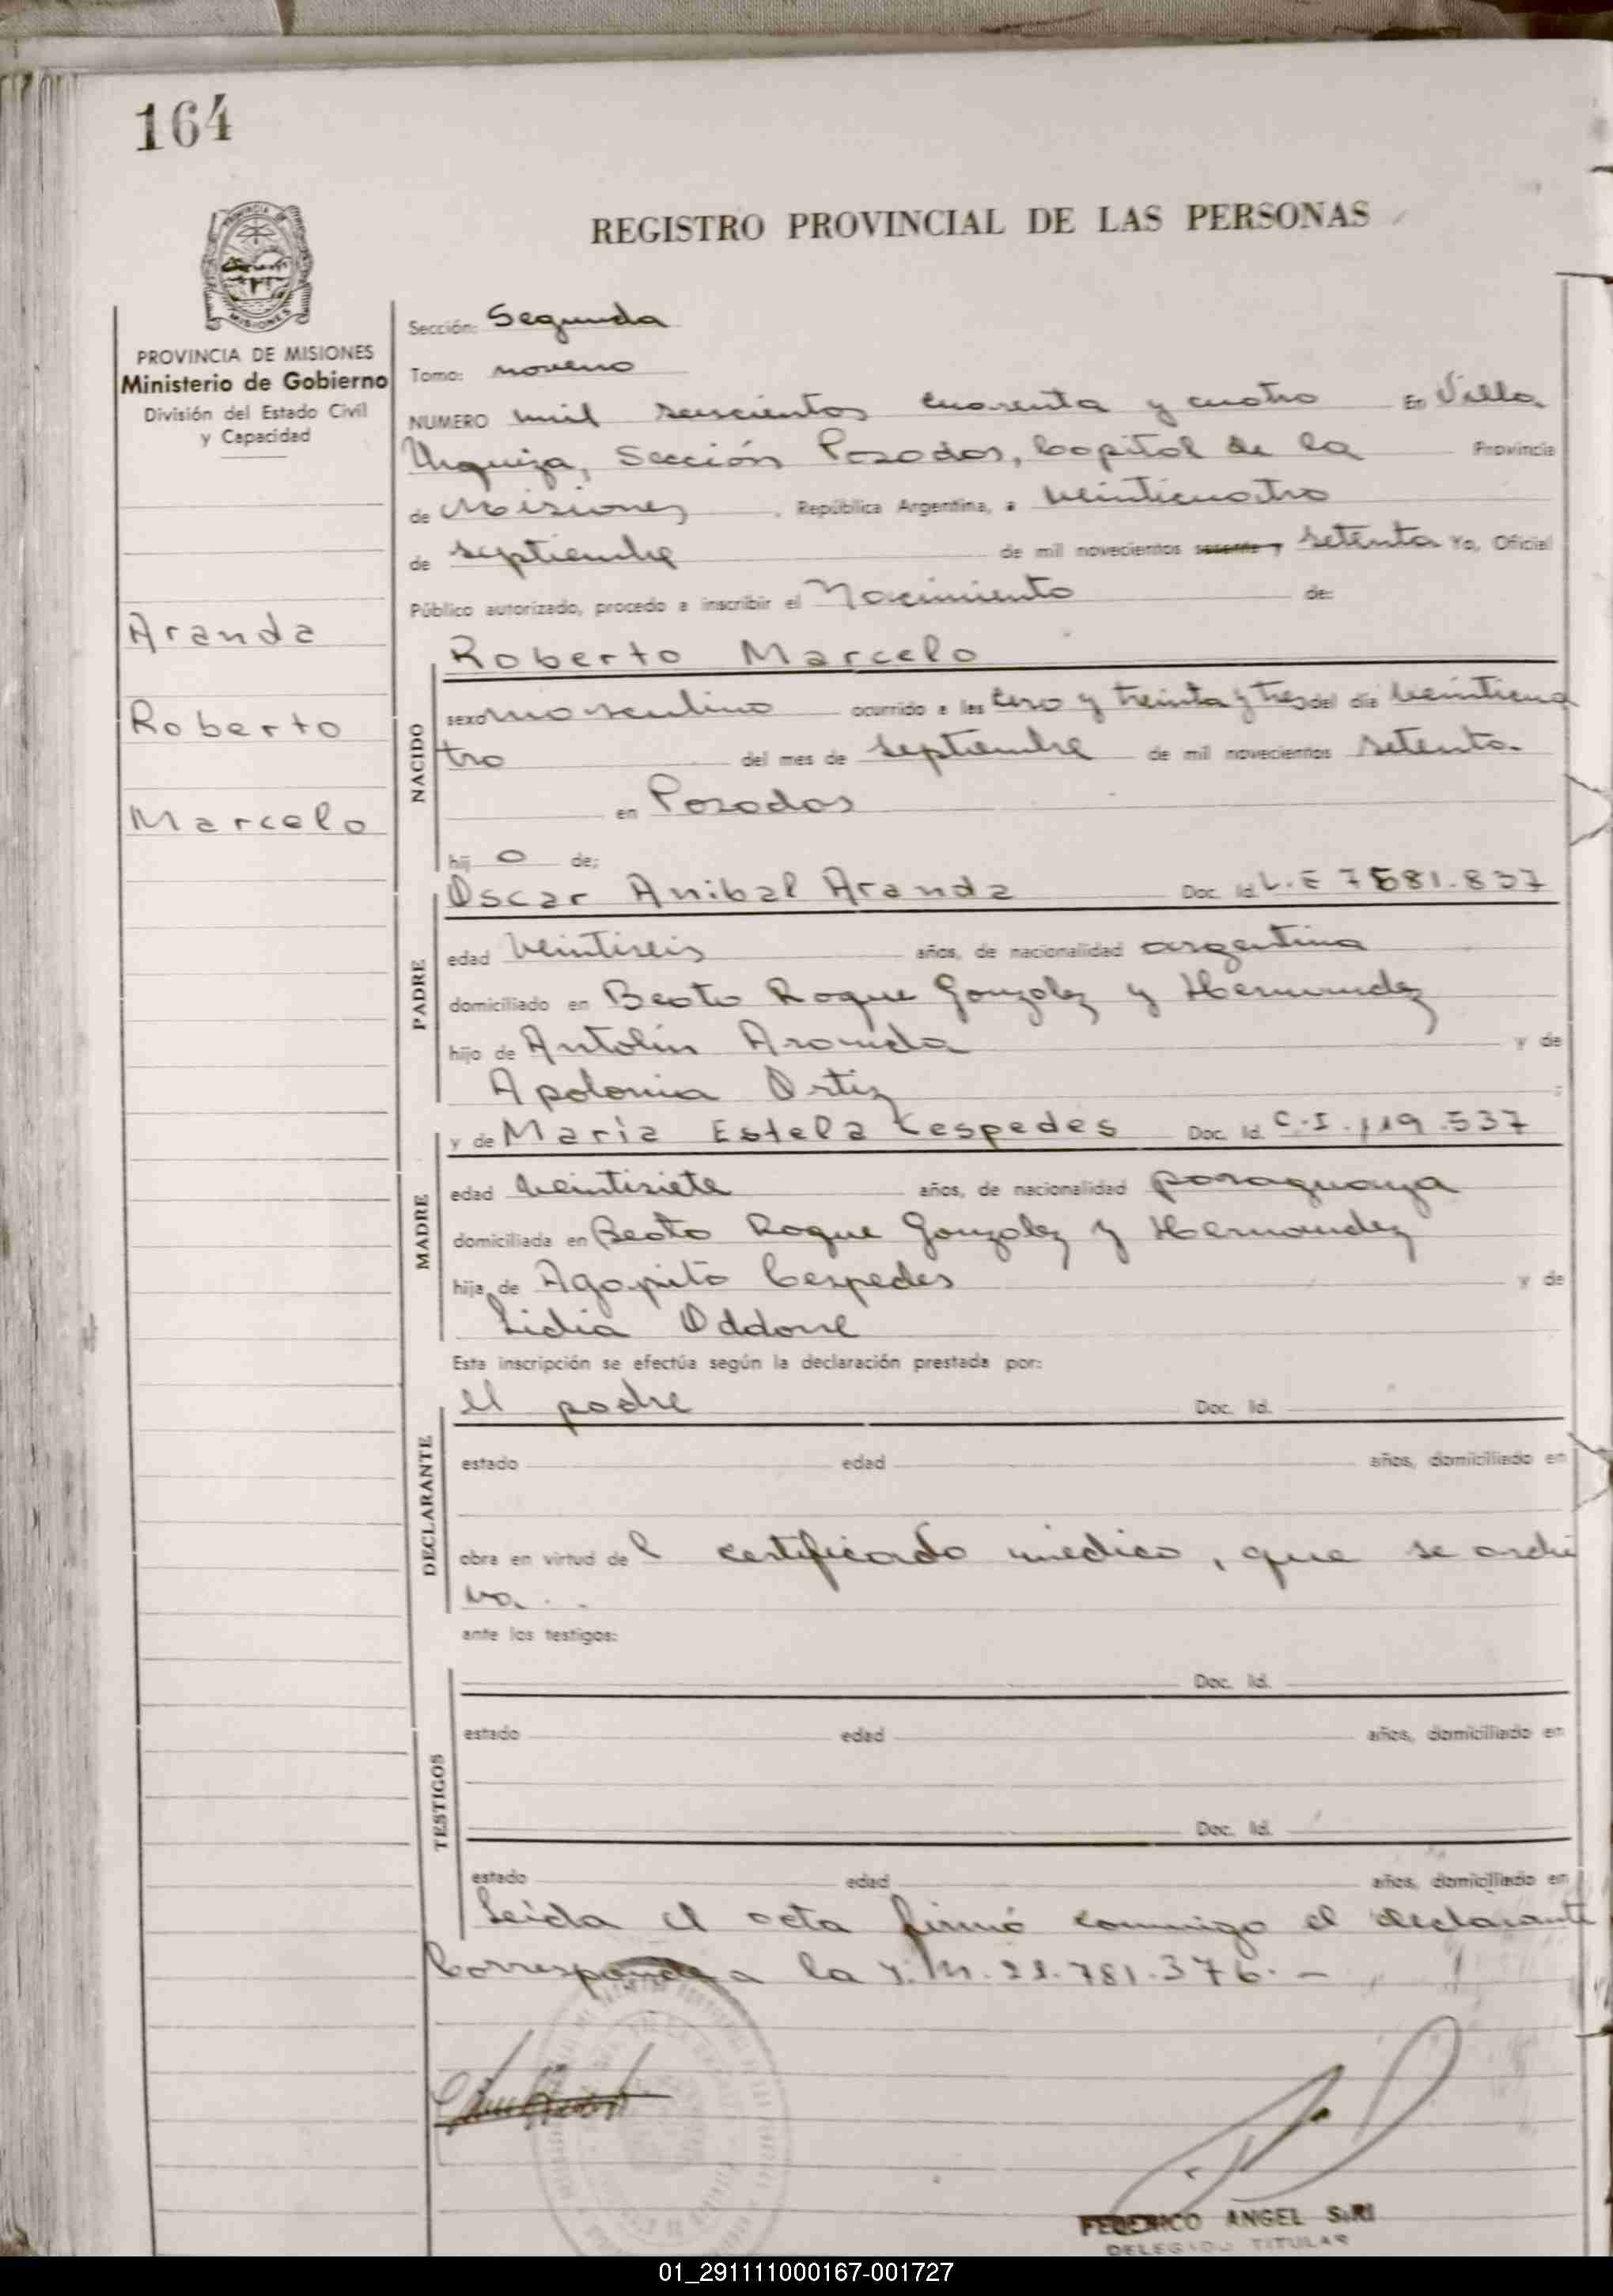 164
REGISTRO PROVINCIAL DE LAS PERSONAS
PROVINCIA DE MISIONES
Ministerio de Gobierno
División del Estado Civil
y Capacidad
Aranda
Roberto
Marcelo
Sección: Segunda
Tomo: noveno
NUMERO mil seiscientos cuarenta y cuatro En Villa
Urquiza, Sección Posadas, Capital de la Provincia
de Misiones, República Argentina, a veinticuatro
de septiembre de mil novecientos sesenta y setenta Yo, Oficial
Público autorizado, procedo a inscribir el Nacimiento de:
NACIDO
Roberto Marcelo
sexo masculino ocurrido a las cero y treinta y tres del día veinticua
tro del mes de septiembre de mil novecientos setenta
en Posadas
hij o de:
PADRE
Oscar Anibal Aranda Doc. Id. L.E 7581.837
edad veintiseis años, de nacionalidad argentina
domiciliado en Beato Roque Gonzalez y Hernandez
hijo de Antolín Aranda y de
Apolonia Ortiz ;
MADRE
y de María Estela Cespedes Doc. Id. C.I. 119.537
edad veintisiete años, de nacionalidad paraguaya
domiciliada en Beato Roque Gonzalez y Hernandez
hija de Agapito Cespedes y de
Lidia Oddone
Esta inscripción se efectúa según la declaración prestada por:
DECLARANTE
el padre Doc. Id.
estado edad años, domiciliado en
obra en virtud de l certificado médico, que se archi
va.
ante los testigos:
TESTIGOS
Doc. Id.
estado edad años, domiciliado en
Doc. Id.
estado edad años, domiciliado en
Leida el acta firmó conmigo el declarante
Corresponde a la M. 21.781.376.-
FEDERICO ANGEL SIRI
DELEGADO TITULAR
01_291111000167-001727